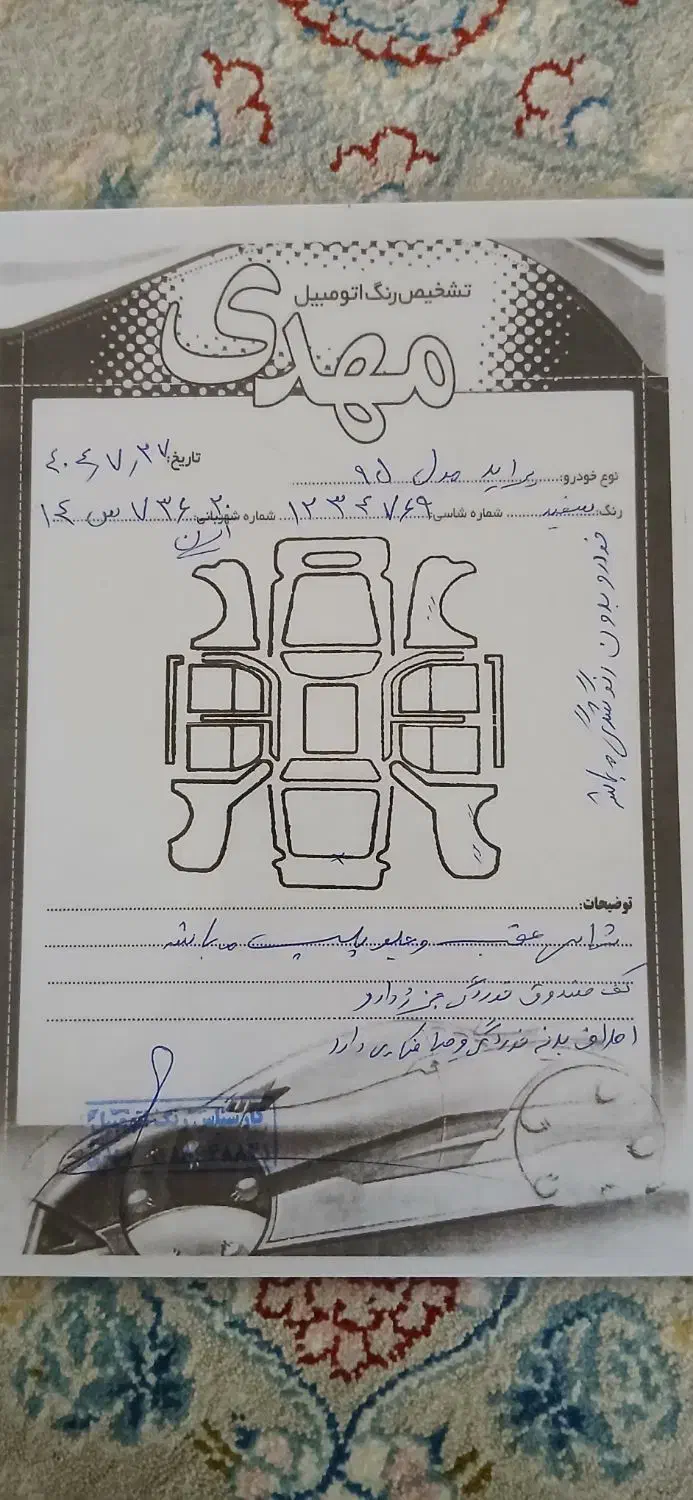 تشخیص رنگ اتومبیل
مهدی
تاریخ: ۴۰۴/۷/۲۷
نوع خودرو: پراید مدل ۹۵
رنگ: سفید شماره شاسی: ۱۲۳۴۷۶۹ شماره شهربانی: ۱۴ س ۷۳۶
ایران ۲۰
خودرو بدون رنگ شدگی می باشد
توضیحات:
شاسی عقب و جلو پلمپ می باشد
کف صندوق خوردگی جزء دارد
اطراف بدنه خوردگی و صافکاری دارد
کارشناس رنگ اتومبیل